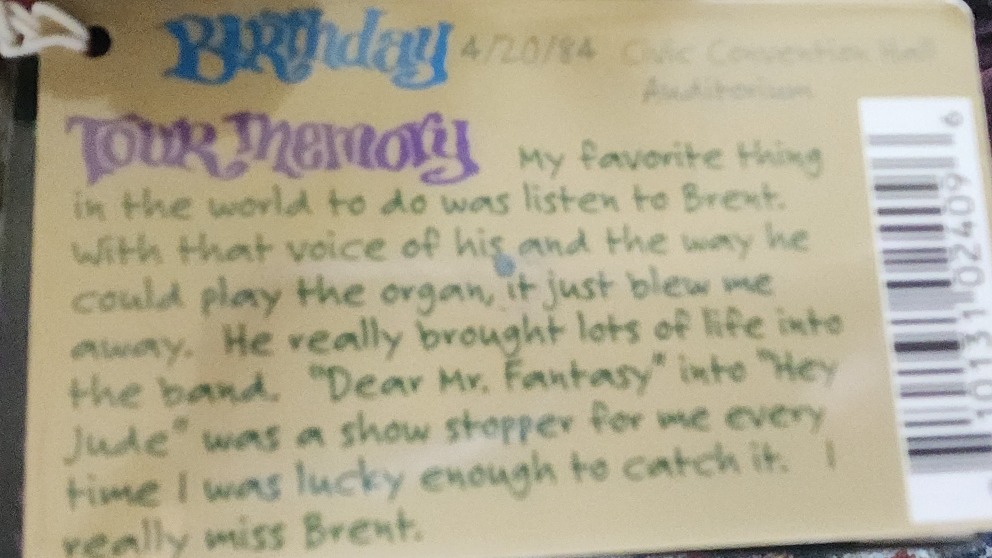 Birthday 4/20/84 Civic Convention Hall
Auditorium
Tour Memory My favorite thing
in the world to do was listen to Brent.
With that voice of his and the way he
could play the organ, it just blew me
away. He really brought lots of life into
the band. "Dear Mr. Fantasy" into "Hey
Jude" was a show stopper for me every
time I was lucky enough to catch it. I
really miss Brent.